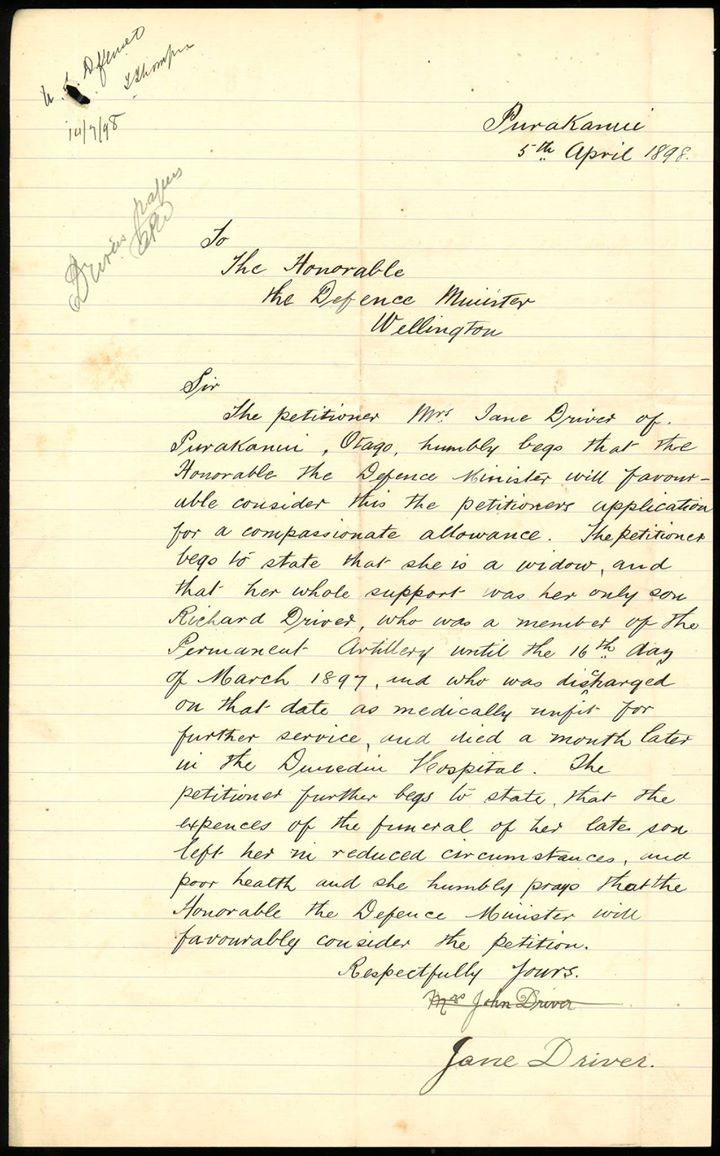 U. S. Defence
J Thompson
14/7/98
Drivers papers
Purakanui
5th April 1898.
To
The Honorable
the Defence Minister
Wellington
Sir
The petitioner Mrs. Jane Driver of.
Purakanui, Otago, humbly begs that the
Honorable the Defence Minister will favour-
able consider this the petitioners application
for a compassionate allowance. The petitioner
begs to state that she is a widow, and
that her whole support was her only son
Richard Driver, who was a member of the
Permanent Artillery until the 16th day
of March 1897, and who was discharged
on that date as medically unfit for
further service, and died a month later
in the Dunedin Hospital. The
petitioner further begs to state, that the
expences of the funeral of her late son
left her in reduced circumstances, and
poor health and she humbly prays that the
Honorable the Defence Minister will
favourably consider the petition.
Respectfully Yours.
Mrs John Driver
Jane Driver.